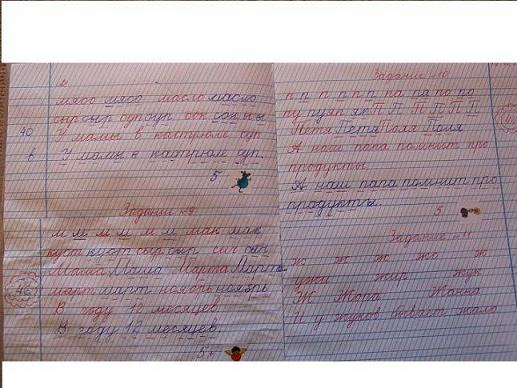 мясо мясо масло масло
сыр сыр суп суп сок сок
У мамы в кастрюле суп
У мамы в кастрюле суп.
5
Задание №9
м м м м м м мак мак
куст куст сыр сыр
Маша Маша Марта Марта
март март ноябрь ноябрь
В году 12 месяцев
В году 12 месяцев.
5+
Задание №10
п п п п п п па па по по
пу пу яп яп П П П П П П
Петя Петя Поля Поля
А наш папа помнит про
продукты.
А наш папа помнит про
продукты.
5
Задание
ж ж ж ж ж
ужи жир жук
Ж Жора Жанна
И у жуков бывает жало